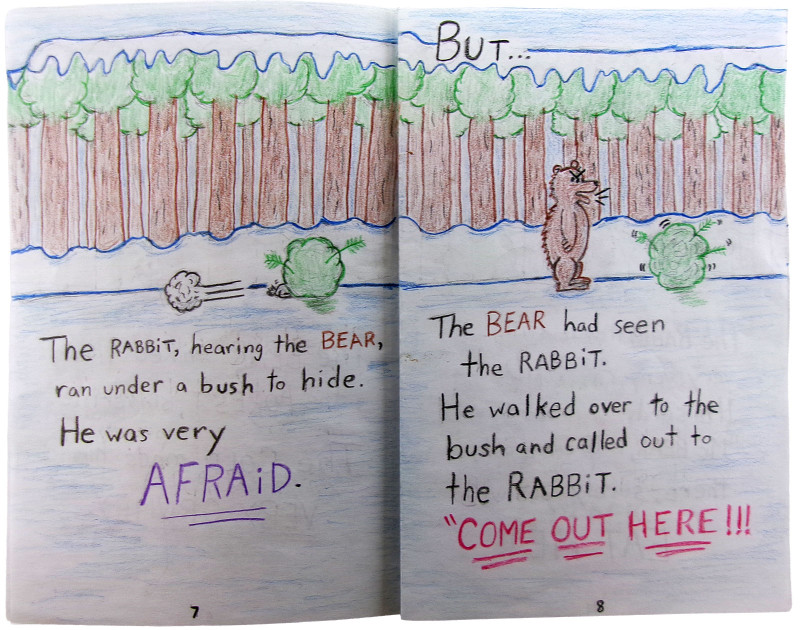 The RABBiT, hearing the BEAR,
ran under a bush to hide.
He was very
AFRAiD.
7
BUT...
The BEAR had seen
the RABBiT.
He walked over to the
bush and called out to
the RABBiT.
"COME OUT HERE!!!
8